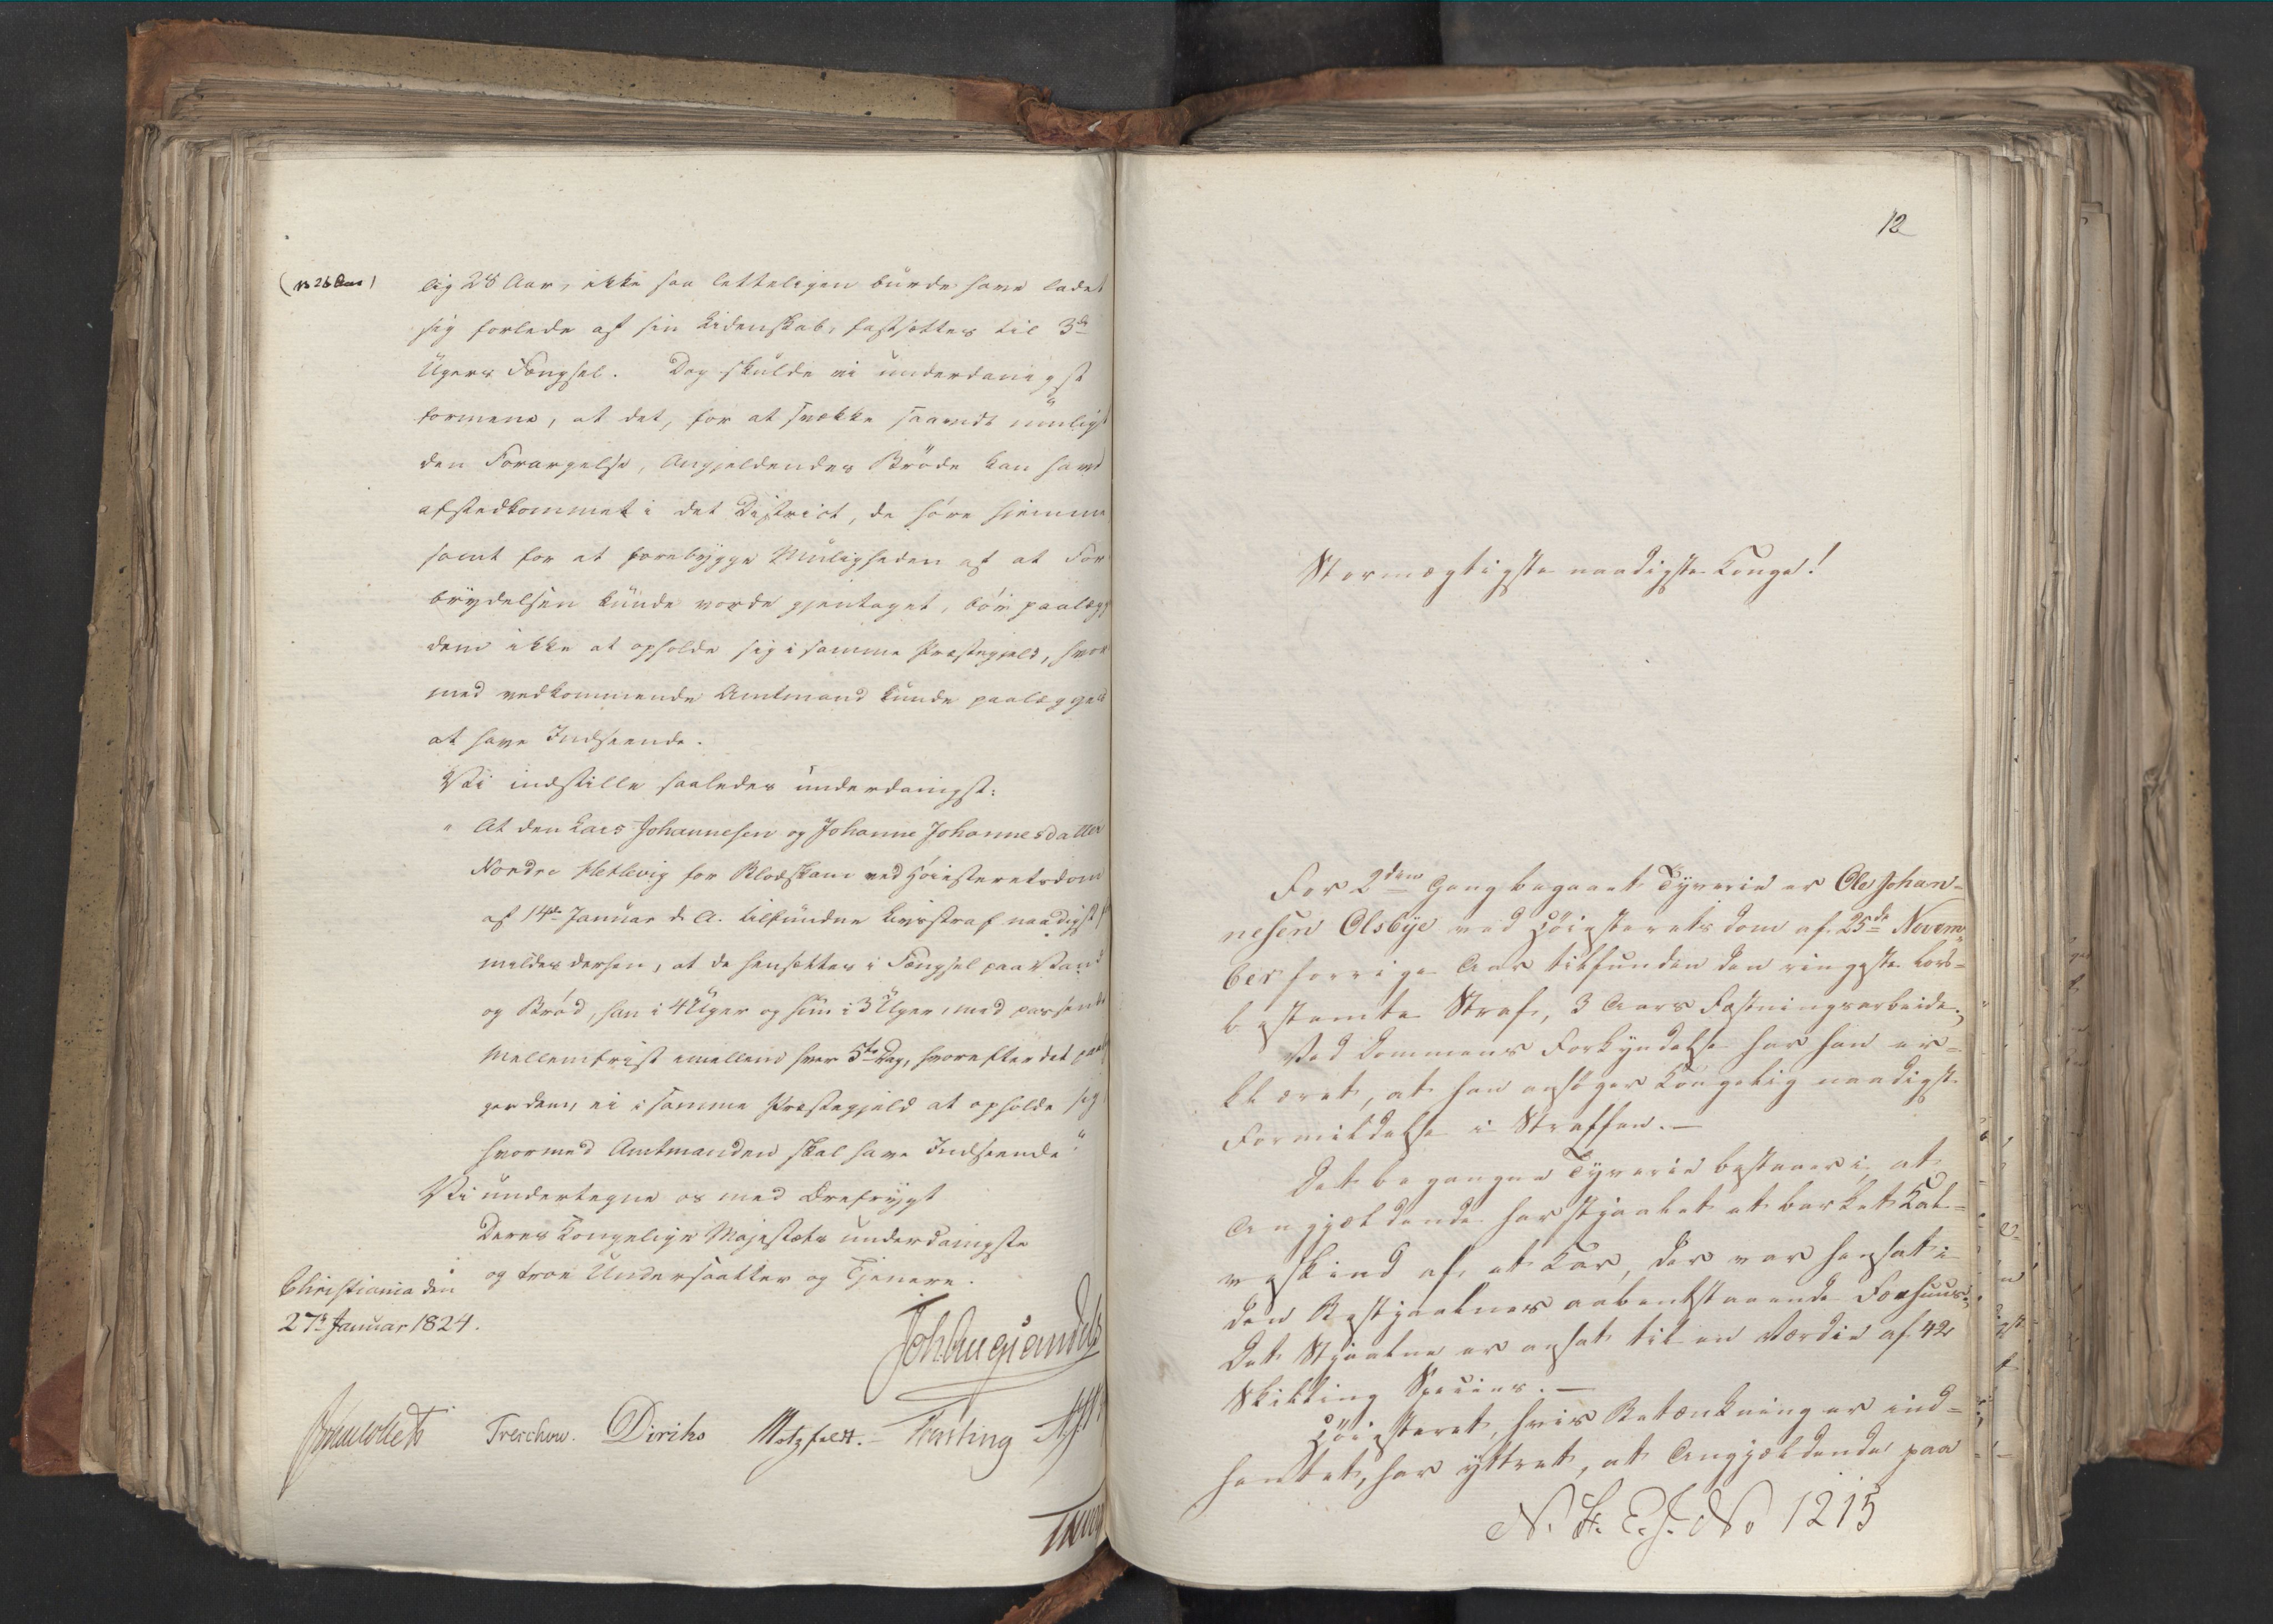 (NB 26 Aar)
lig 28 Aar, ikke saa letteligen burde have ladet
sig forlede af sin Lidenskab, fastsættes til 3de
Ugers Fængsel. Dog skulde vi underdanigst
formene, at det, for at svække saavidt muligt
den Forargelse, Angjeldendes Brøde kan have
afstedkommet i det District, de høre hjemme
samt for at forebygge Muligheden af at For
brydelsen kunde vorde gjentaget, bør paalægges
dem ikke at opholde sig i samme Præstegjeld, hvor
med vedkommende Amtmand kunde paalægges
at have Indseende.
Vi indstille saaledes underdanigst:
" At den Lars Johannesen og Johanne Johannesdatter
Nordre Hetlevig for Blodskam ved Høiesteretsdom
af 14de Januar d. A. tilfundne Livsstraf naadigst
mildes derhen, at de hensættes i Fængsel paa Vand
og Brød, han i 4 Uger og hun i 3 Uger, med passende
Mellemfrist imellem hver 5te Dag, hvorefter det paalæg
ges dem, ei i samme Præstegjeld at opholde sig
hvormed Amtmanden skal have Indseende"
Vi undertegne os med Ærefrygt
Deres Kongelige Majestæts underdanigste
og troe Undersaatter og Tjenere.
Christiania den
27de Januar 1824.
Joh. Aug. Sandels
Jonas Collett Treschow. Diriks Motzfeldt. Fasting
12
Stormægtigste naadigste Konge!
For 2den Gang begaaet Tyverie er Ole Johan-
nesen Olsbye ved Høiesterets dom af 25de Novem-
ber forrige Aar tilfunden den ringeste lov-
bestemte Straf, 3 Aars Fæstningsarbeide.
Ved Dommens Forkyndelse har han er-
klæret, at han ansøger Kongelig naadigst
Formildelse i Straffen. —
Det begangne Tyverie bestaaer i, at
Angjældende har stjaalet et barket Kal-
veskind af et Kar, der var hensat i
den Bestjaalnes aabentstaaende Foehuus.
Det Stjaalne er ansat til en Værdie af 42
Skilling Species. —
Høiesteret, hvis Betænkning er ind-
hentet, har yttret, at Angjældende paa
N. S. E. J. No 1215